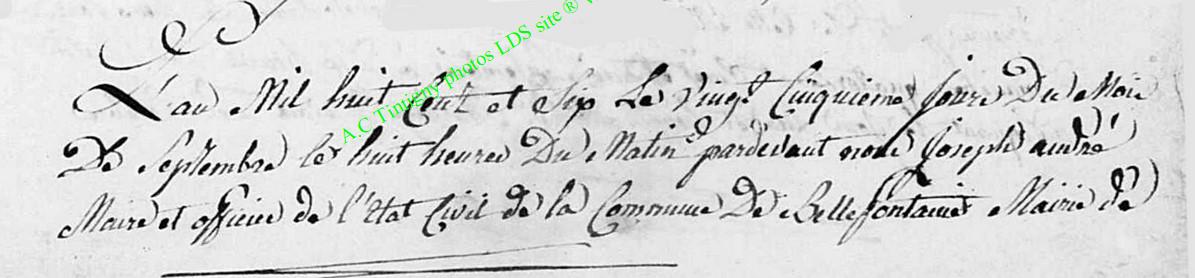 L'an Mil huit Cent et Six Le Vingt Cinquieme jour Du Mois
De Septembre les huit heures Du Matin pardevant nous joseph andré
Maire et officier de l'état Civil de la Commune De Bellefontaine Mairie de
A.C Tintigny photos LDS site ®